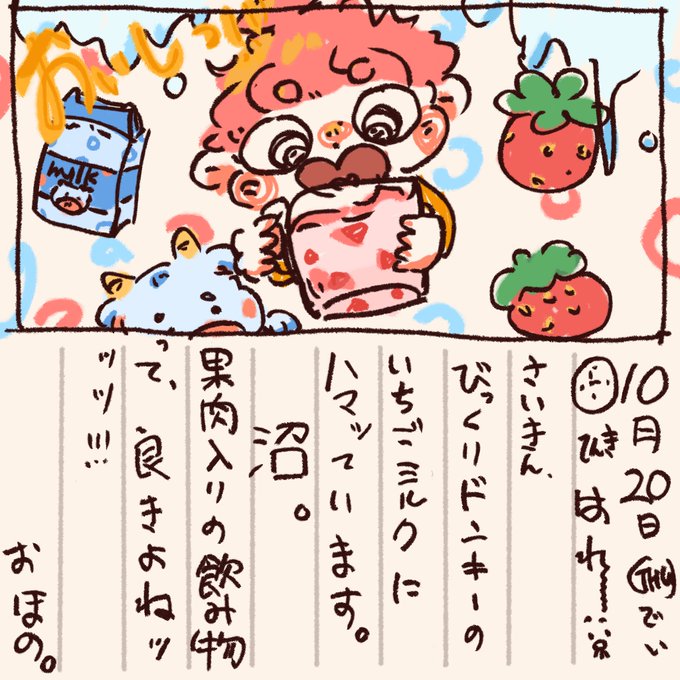 おいしっ!!
milk
10月20日(THU)でい
てんき はれー
さいきん、
びっくりドンキーの
いちごミルクに
ハマッています。
沼。
果肉入りの飲み物
って、良きよねッ
ッッ!!!
おほの。